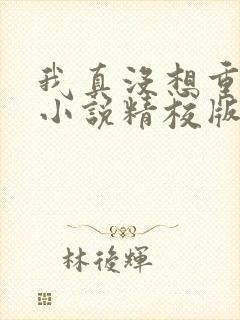 我真没想重
小说精校版
林後輝